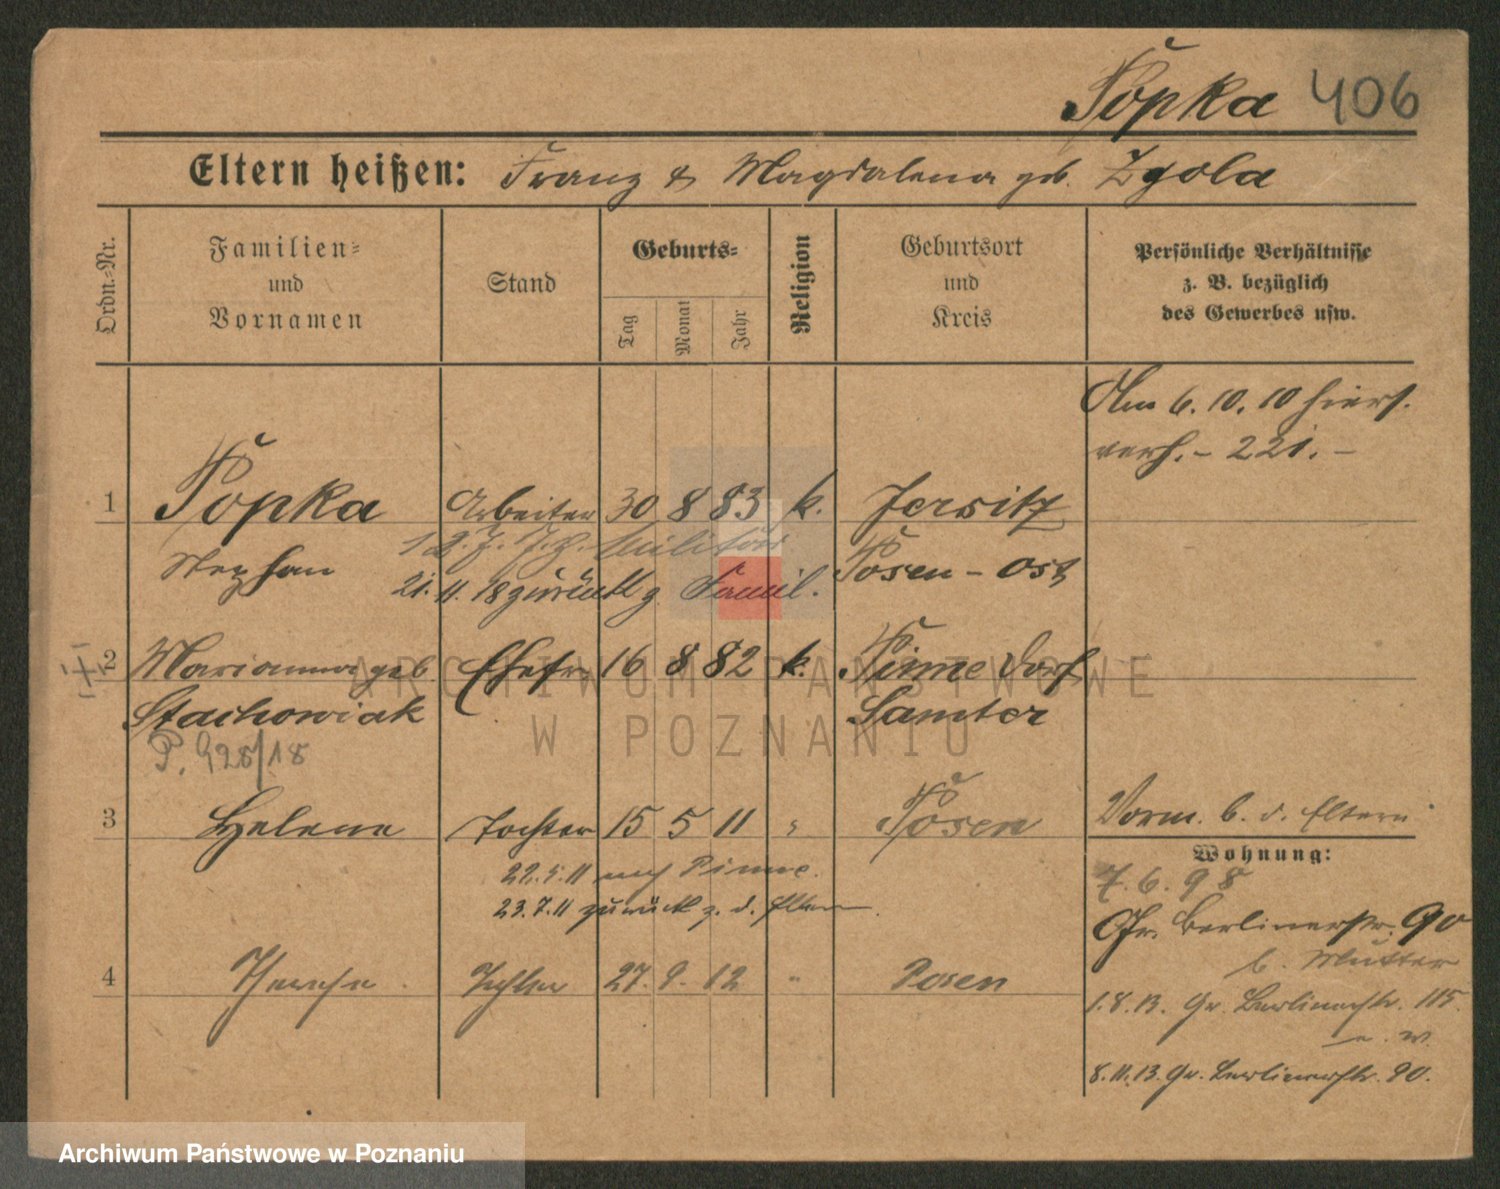 Popka 406
Eltern heißen: Franz & Magdalena geb. Zgola
Ordn.-Nr.
Familien-
und
Vornamen
Stand
Geburts-
Tag
Monat
Jahr
Religion
Geburtsort
und
Kreis
Persönliche Verhältnisse
z. B. bezüglich
des Gewerbes usw.
Am 6. 10. 10 hiers.
verh. – 221. –
1 Popka Arbeiter 30 8 83 k. Jersitz
Militär
Stephan Posen - Ost
21. 11. 18 zurück z Famil.
2 Marianna geb Ehefr. 16 8 82 k. Pinne Dorf
Stachowiak Samter
P. 928/18
3 Helene Tochter 15 5 11 " Posen Vorm. b. d. Eltern
Wohnung:
22. 5. 11 nach Pinne.
7. 6. 98
23. 7. 11 zurück z. d. Eltern.
Gr. Berlinerstr. 90
b. Mutter
4 Therese Tochter 27. 9. 12 " Posen
1. 8. 13. Gr. Berlinerstr. 115.
8. 11. 13. Gr. Berlinerstr. 90.
ARCHIWUM PAŃSTWOWE
W POZNANIU
Archiwum Państwowe w Poznaniu